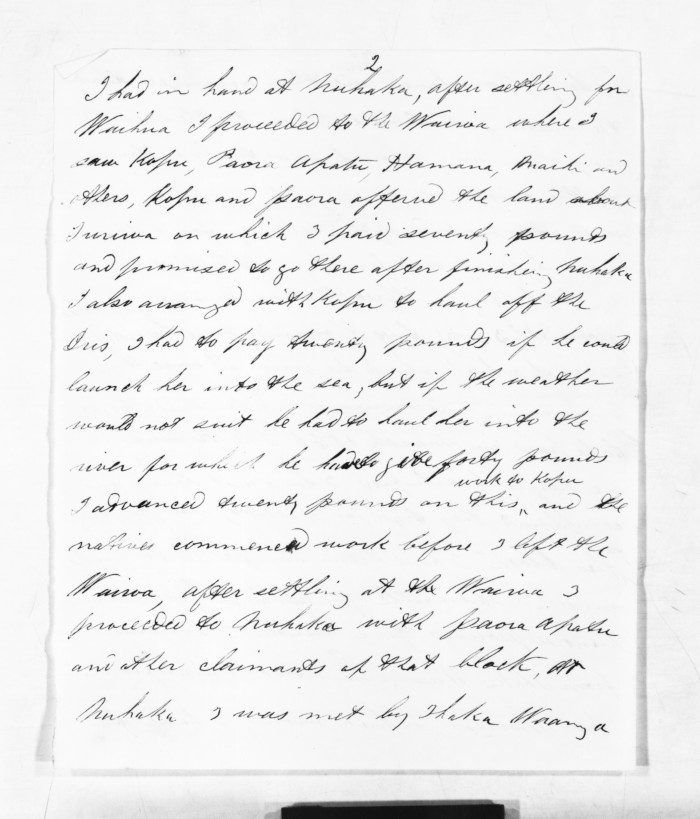 2
I had in hand at Nuhaka, after settling for
Waihua I proceeded to the Wairoa where I
saw Kopu, Paora Apatu, Hamana, Maihi and
others, Kopu and Paora offered the land about
Turiroa on which I paid seventy pounds
and promised to go there after finishing Nuhaka
I also arranged with Kopu to haul off the
Iris, I had to pay twenty pounds if he could
launch her into the sea, but if the weather
would not suit he had to haul her into the
river for which he had to get forty pounds
work to Kopu
I advanced twenty pounds on this, and the
natives commenced work before I left the
Wairoa, after settling at the Wairoa I
proceeded to Nuhaka with Paora Apatu
and other claimants of that block, At
Nuhaka I was met by Ihaka Waanga